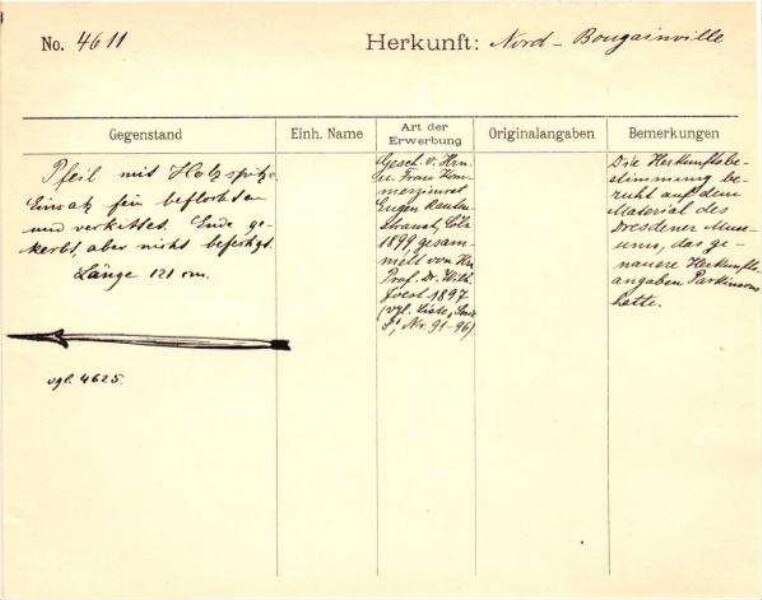 No. 4611
Herkunft: Nord-Bougainville
Gegenstand
Einh. Name
Art der Erwerbung
Originalangaben
Bemerkungen
Pfeil mit Holzspitze.
Einsatz fein beflochten
und verkittet. Ende ge-
kerbt, aber nicht befestigt.
Länge 121 cm.
vgl. 4625.
Gesch. v. Hrn.
u. Frau Kom-
merzienrat
Eugen Rauten-
strauch, Cöln
1899, gesam-
melt von Hn.
Prof. Dr. Wilh.
Joest 1897
(vgl. Liste,
Nr. 91-96)
Die Herkunftsbe-
stimmung be-
ruht auf dem
Material des
Dresdener Muse-
ums, das ge-
nauere Herkunfts-
angaben Parkinsons
hatte.